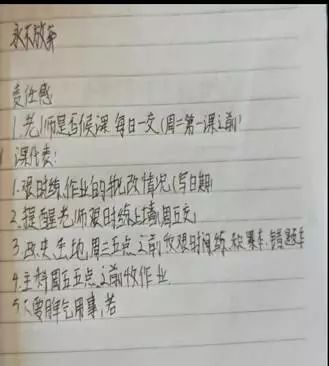 永不放弃
责任感
1.老师是否候课 每日一交(周二第一课之前)
课代表:
1.限时练,作业的批改情况(写日期)
2.提醒老师限时练上墙(周五交)
3.政史生地周三五点之前收限时练、积累本、错题本
4.主科周五五点之前收作业
5.不要脾气用事,若